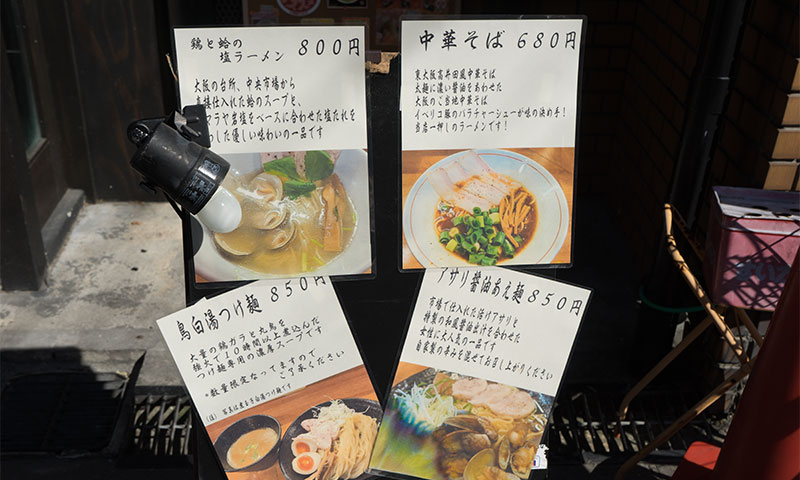 鶏と蛤の
塩ラーメン 800円
大阪の台所、中央市場から
直接仕入れた蛤のスープと、
マラヤ岩塩をベースに合わせた塩だれを
した優しい味わいの一品です
中華そば 680円
東大阪高井田風中華そば
太麺に濃い醤油をあわせた
大阪のご当地中華そば
イベリコ豚のバラチャーシューが味の決め手!
当店一押しのラーメンです!
鳥白湯つけ麺 850円
大量の鶏ガラと丸鳥を
強火で10時間以上煮込んだ
つけ麺専用の濃厚スープです
*数量限定なってますので
ご了承ください
(注) 写真は煮玉子白湯つけ麺です
アサリ醤油あえ麺 850円
市場で仕入れた活けアサリと
特製の和風醤油出汁を合わせた
女性に大人気の一品です
自家製の辛みを混ぜてお召し上がりください